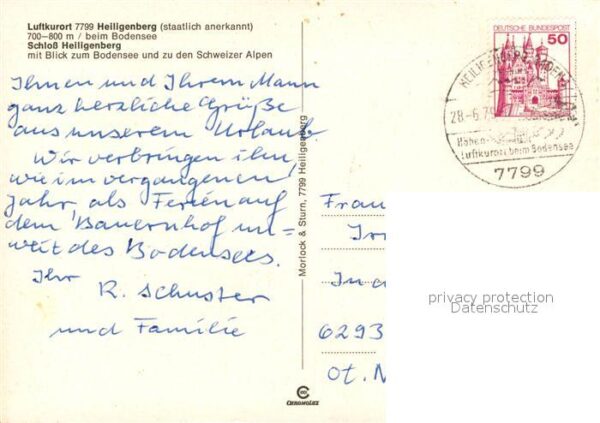 Luftkurort 7799 Heiligenberg (staatlich anerkannt)
700-800 m / beim Bodensee
Schloß Heiligenberg
mit Blick zum Bodensee und zu den Schweizer Alpen
Ihnen und Ihrem Mann
ganz herzliche Grüße
aus unserem Urlaub
Wir verbringen ihn,
wie im vergangenen
Jahr, als Ferien auf
dem Bauernhof un=
weit des Bodensees.
Ihr
R. Schuster
und Familie
Morlock & Sturn, 7799 Heiligenberg
CHROMOLUX
DEUTSCHE BUNDESPOST
50
HEILIGENBERG, BADEN
28-6.79
Höhen-
Luftkurort beim Bodensee
7799
Frau
6293
privacy protection
Datenschutz